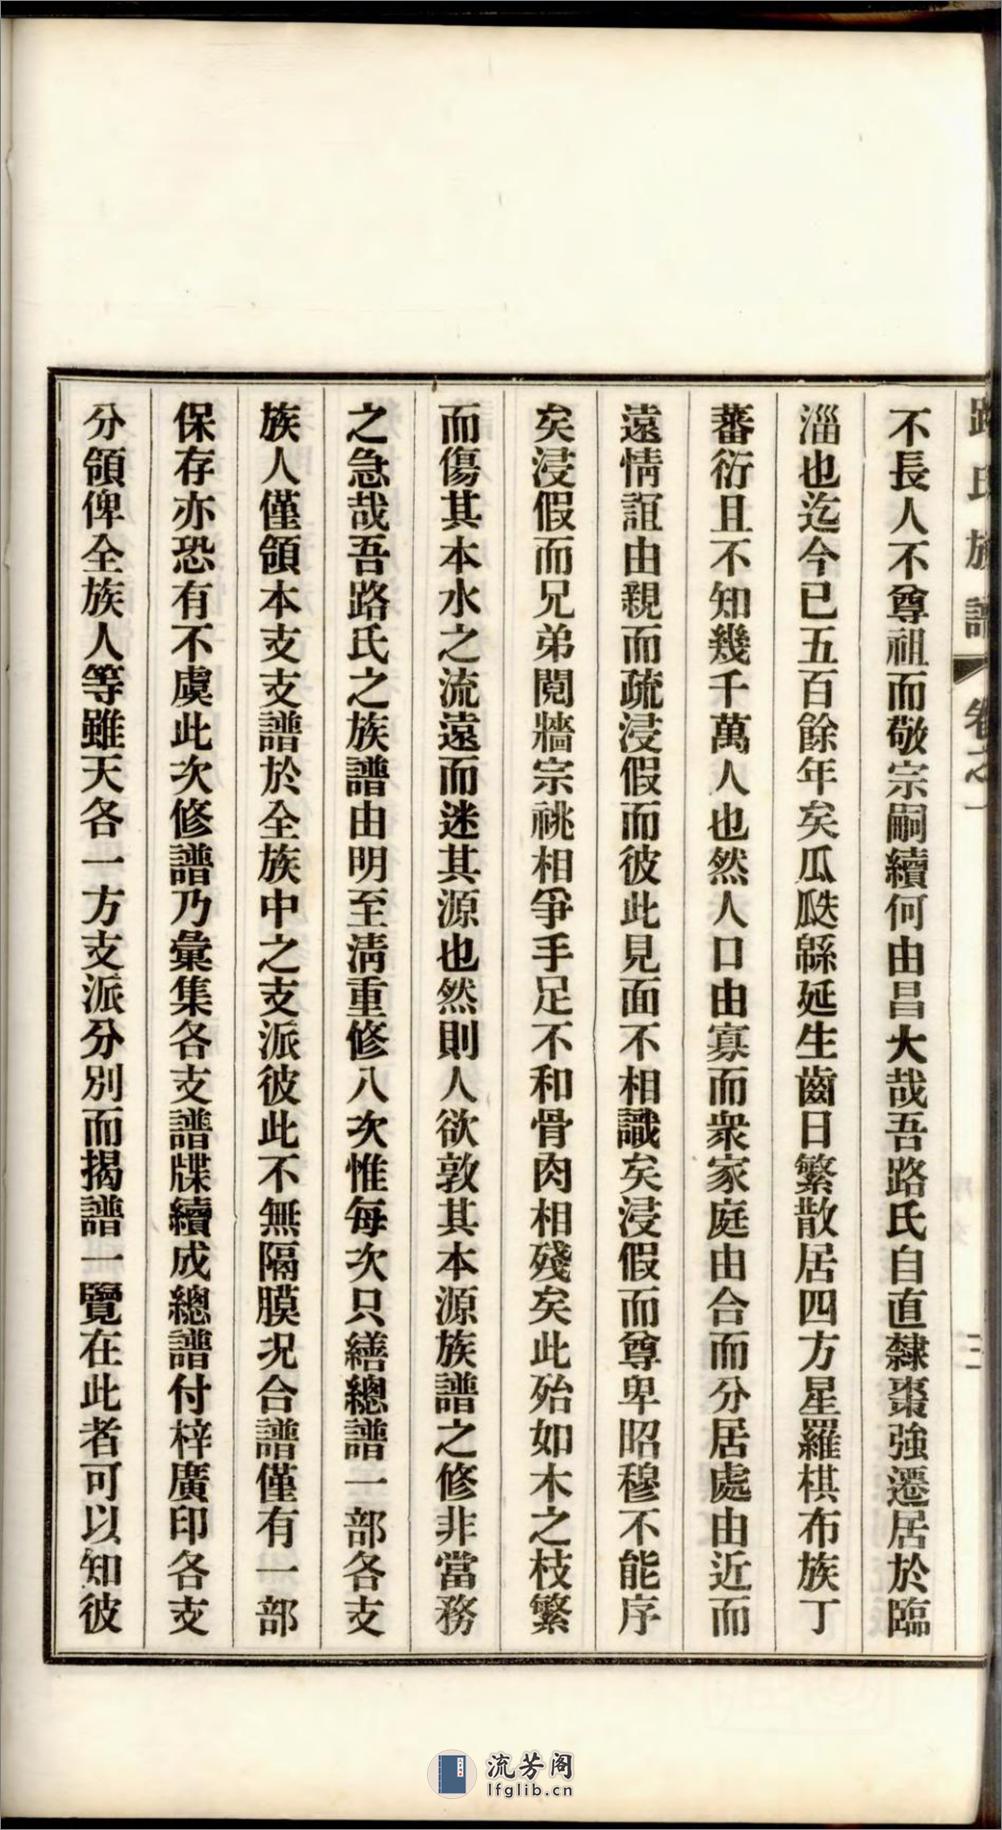 路氏族譜 卷之一
不長人不尊祖而敬宗嗣續何由昌大哉吾路氏自直隸棗強遷居於臨
淄也迄今已五百餘年矣瓜瓞緜延生齒日繁散居四方星羅棋布族丁
蕃衍且不知幾千萬人也然人口由寡而衆家庭由合而分居處由近而
遠情誼由親而疏浸假而彼此見面不相識矣浸假而尊卑昭穆不能序
矣浸假而兄弟閱牆宗祧相爭手足不和骨肉相殘矣此殆如木之枝繁
而傷其本水之流遠而迷其源也然則人欲敦其本源族譜之修非當務
之急哉吾路氏之族譜由明至淸重修八次惟每次只繕總譜一部各支
族人僅領本支支譜於全族中之支派彼此不無隔膜况合譜僅有一部
保存亦恐有不虞此次修譜乃彙集各支譜牒續成總譜付梓廣印各支
分領俾全族人等雖天各一方支派分別而揭譜一覽在此者可以知彼
流芳阁
lfglib.cn